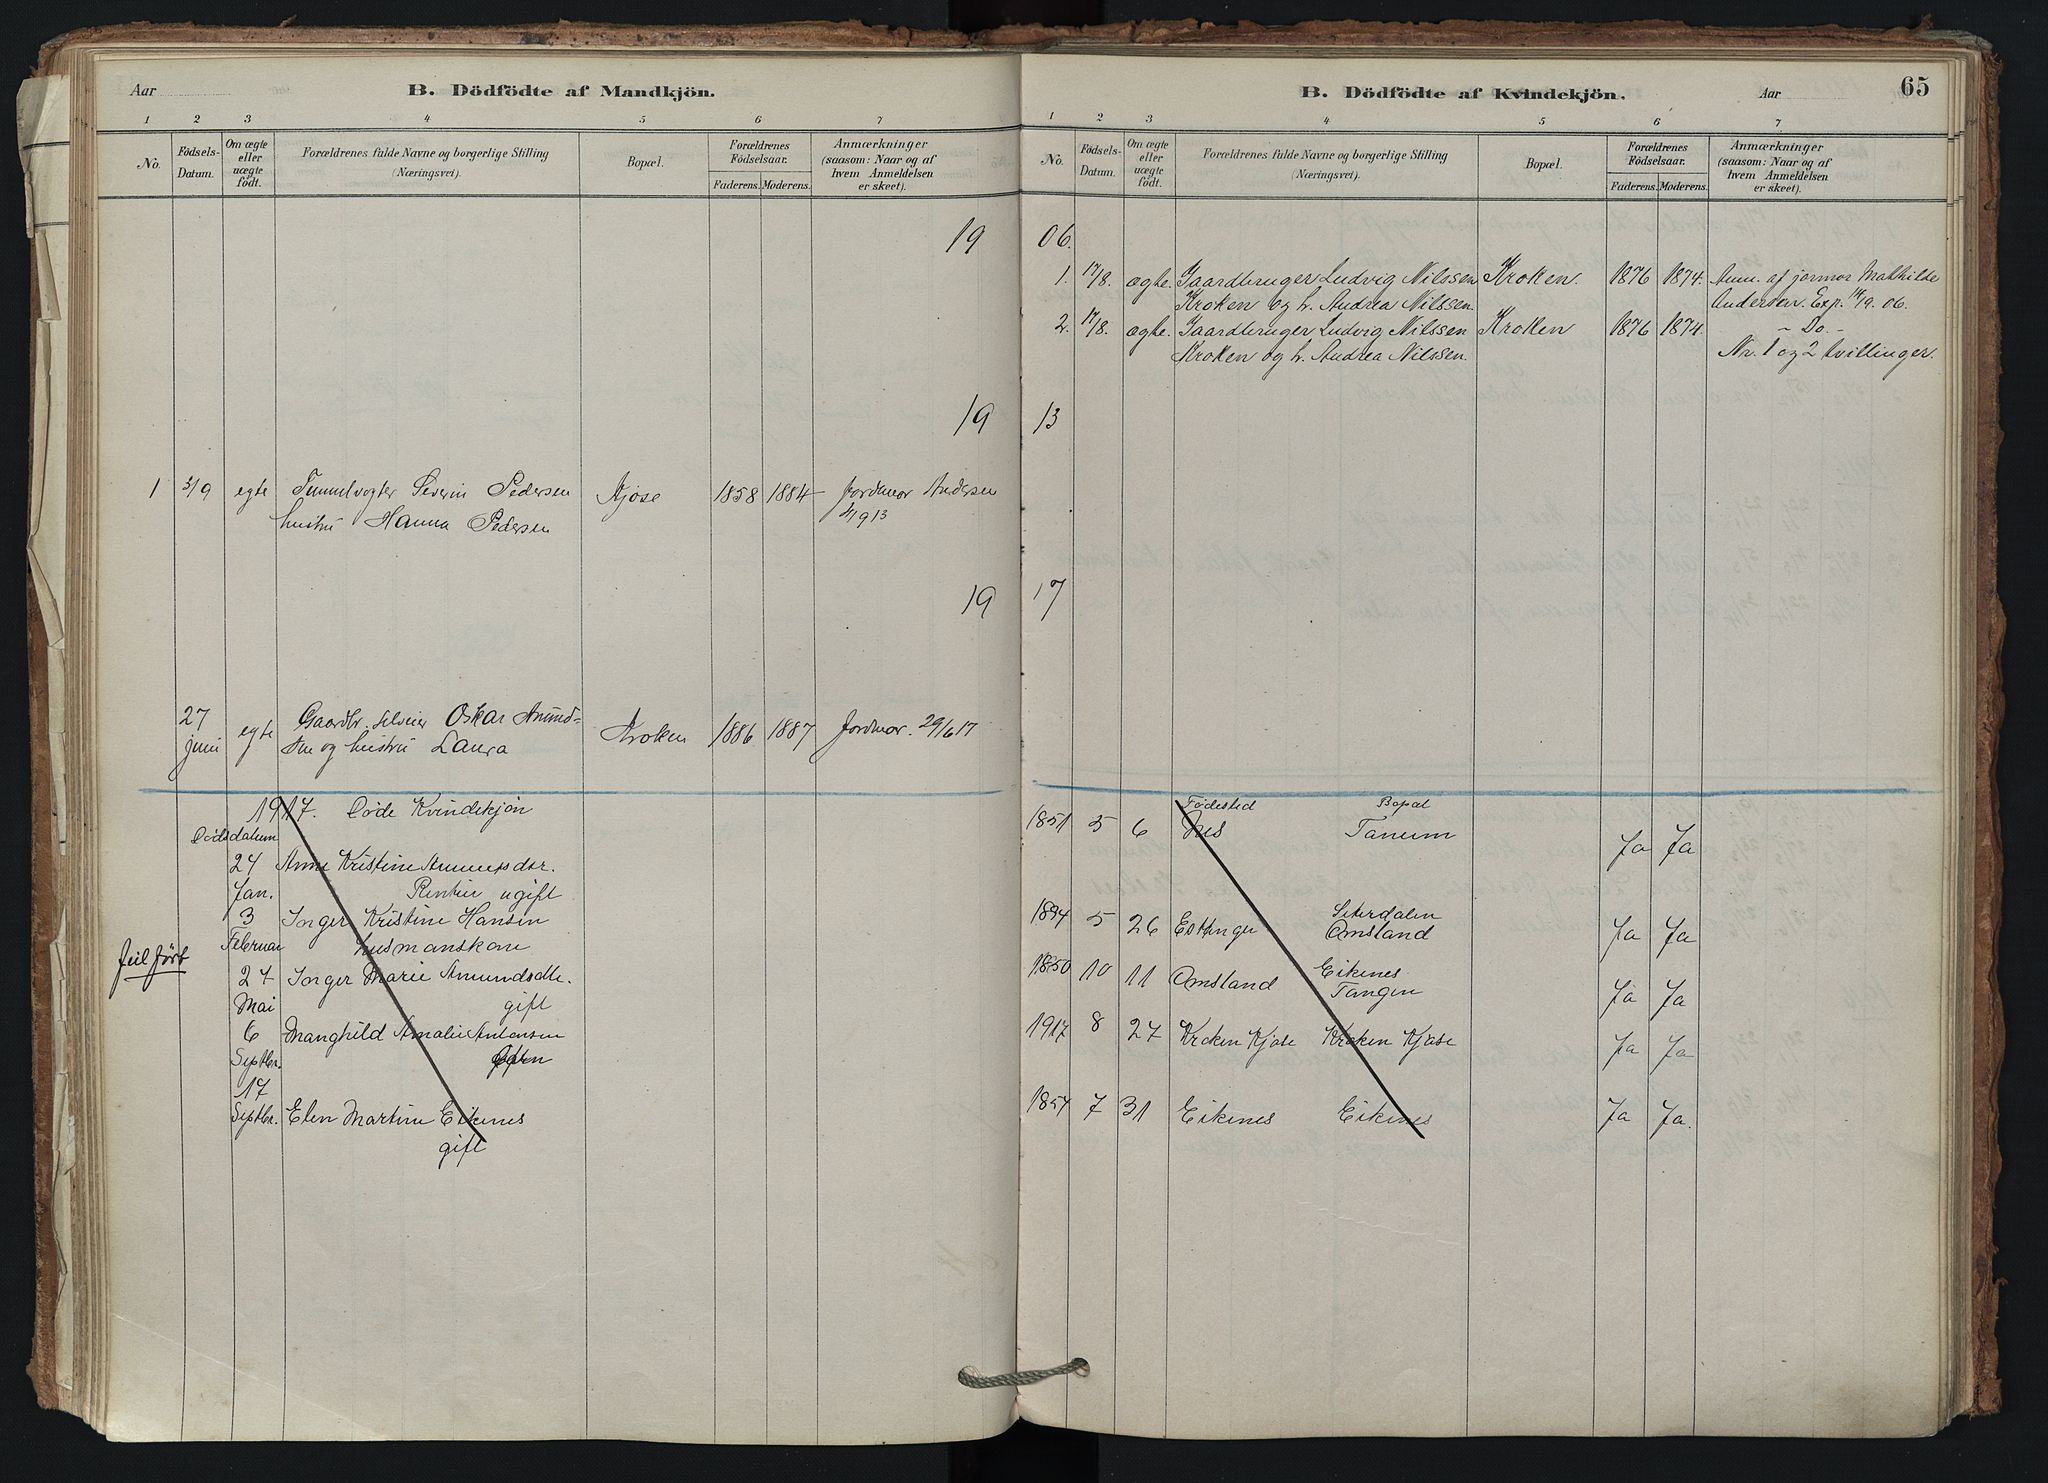 Aar
B. Dödfödte af Mandkjön.
1 2 3 4 5 6 7
No.
Födsels-
Datum.
Om ægte
eller
uægte
födt.
Forældrenes fulde Navne og borgerlige Stilling
(Næringsvei).
Bopæl.
Forældrenes
Födselsaar.
Faderens. Moderens.
Anmærkninger
(saasom: Naar og af
hvem Anmeldelsen
er skeet).
19
19
1 3/9 egte Severin Pedersen Kjose 1858 1884 Jordmor Andersen
hustru Hanna Pedersen
19
27
juni egte Gaardbr. Oskar Amund-
sen og hustru Laura Kroken 1886 1887 Jordmor. 29/6 17
1917. Døde Kvindekjøn
Dødsdatum
24 Anne Kristine
Jan. Rentier ugift
3 Inger Kristine Hansen
Februar husmanskone
feil ført
24 Inger Marie Amundsdtr.
Mai gift
6 Manghild Amalie Antonsen
Septbr.
17
Septbr. Elen Martine Eikenes
gift
B. Dödfödte af Kvindekjön.
Aar
65
1 2 3 4 5 6 7
No.
Födsels-
Datum.
Om ægte
eller
uægte
födt.
Forældrenes fulde Navne og borgerlige Stilling
(Næringsvei).
Bopæl.
Forældrenes
Födselsaar.
Faderens. Moderens.
Anmærkninger
(saasom: Naar og af
hvem Anmeldelsen
er skeet).
06.
1. 17/8. ægte. Gaardbruger Ludvig Nilssen Kroken. 1876 1874. Anm. af jormor Mathilde
Kroken og h. Andrea Nilssen. Andersen. Exp. 14/9. 06.
2. 17/8. ægte. Gaardbruger Ludvig Nilssen Kroken 1876 1874. - Do. -
Kroken og h. Andrea Nilssen. Nr. 1 og 2 tvillinger.
13
17
Fødested Bopæl
1851 5 6 Tanum Ja Ja
Seterdalen
1894 5 26 Omsland Ja Ja
1850 10 11 Omsland Eikenes
Tangen Ja Ja
1917 8 27 Kroken Kjose Kroken Kjose Ja Ja
1857 7 31 Eikenes Eikenes Ja Ja.